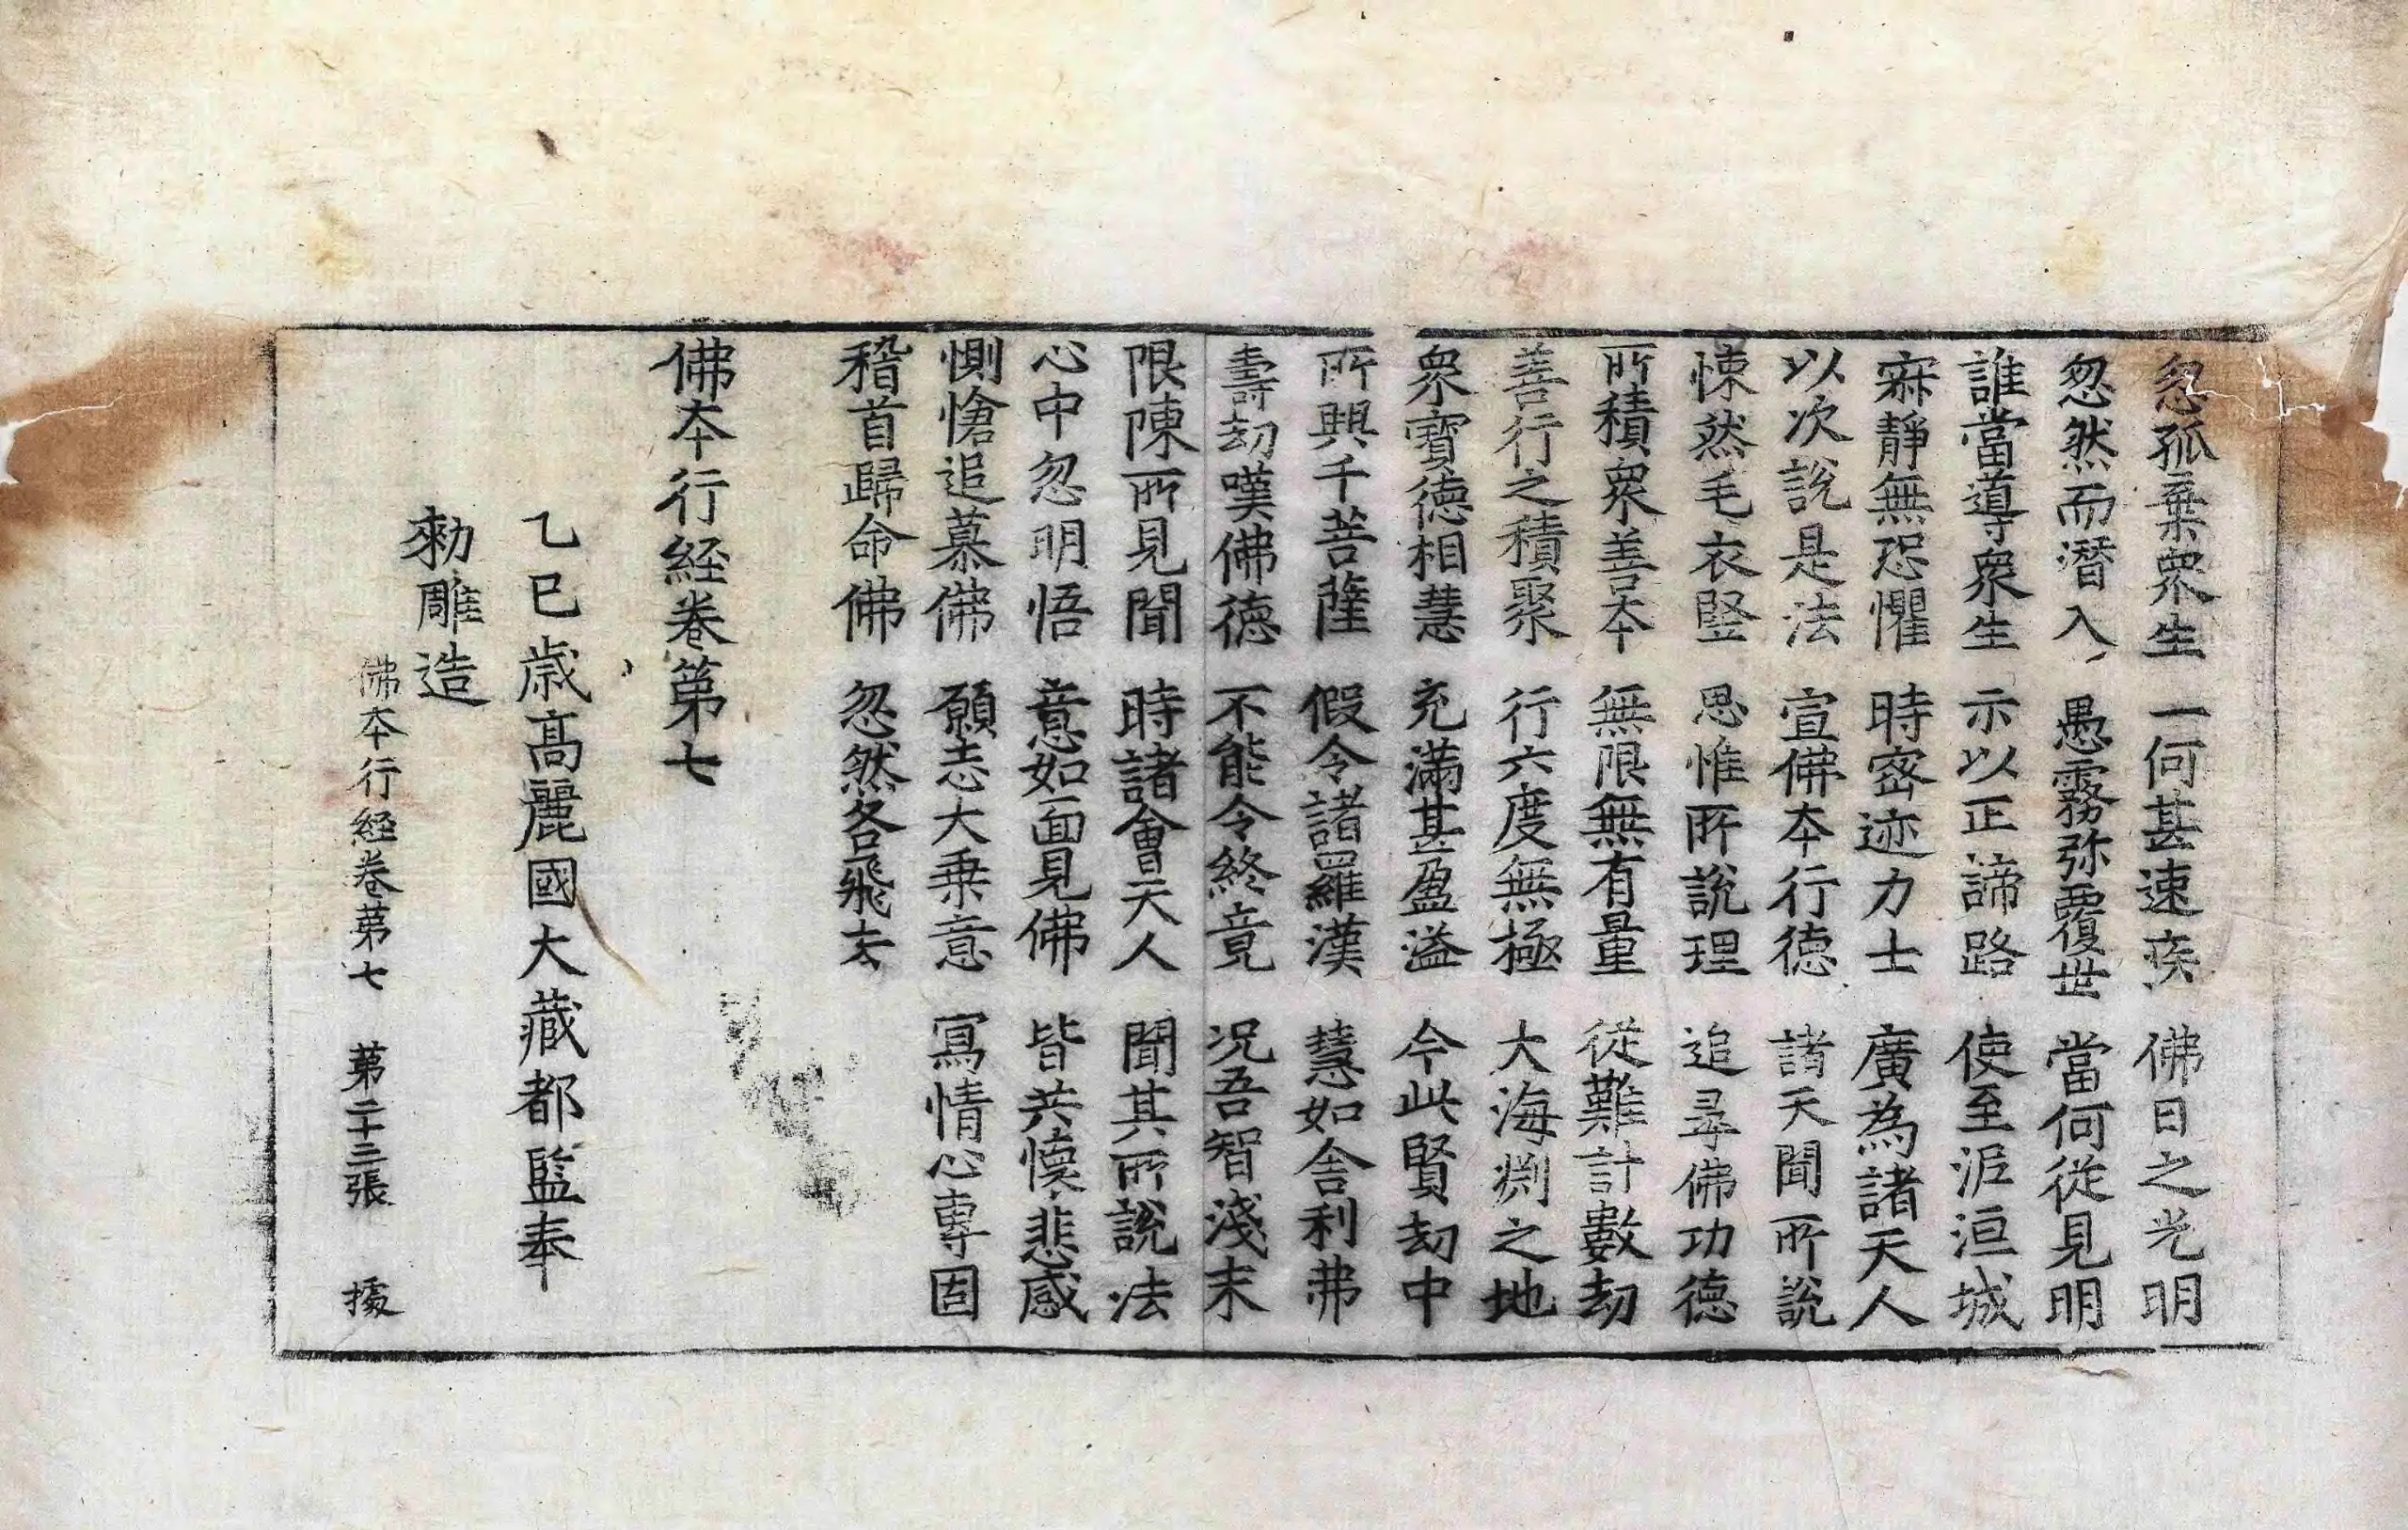 忽孤棄衆生 一何甚速疾 佛日之光明
忽然而潛入 愚霧弥覆世 當何從見明
誰當導衆生 示以正諦路 使至泥洹城
寂靜無恐懼 時密迹力士 廣為諸天人
以次說是法 宣佛本行德 諸天聞所說
悚然毛衣竪 思惟所說理 追尋佛功德
所積衆善本 無限無有量 從難計數劫
善行之積聚 行六度無極 大海渕之地
衆寶德相慧 充滿甚盈溢 今此賢劫中
所興千菩薩 假令諸羅漢 慧如舍利弗
壽劫嘆佛德 不能令終竟 況吾智淺末
限陳所見聞 時諸會天人 聞其所說法
心中忽明悟 意如面見佛 皆共懷悲感
惻愴追慕佛 願志大乗意 寫情心專固
稽首歸命佛 忽然各飛去
佛本行経卷第七
乙巳歳高麗國大藏都監奉
勑雕造
佛本行経卷第七 第二十三張 據